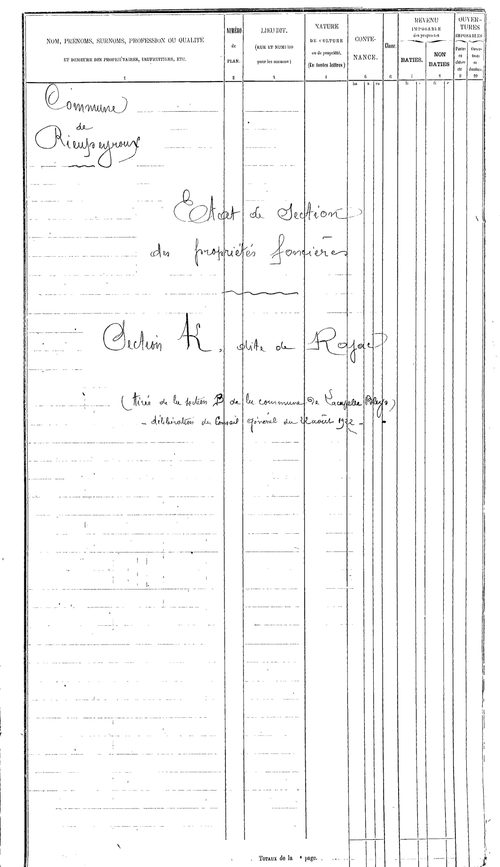 NOM, PRÉNOMS, SURNOMS, PROFESSION OU QUALITÉ
ET DEMEURE DES PROPRIÉTAIRES, USUFRUITIERS, ETC.
1
NUMÉRO
de
PLAN.
2
LIEUDIT.
(RUE ET NUMÉRO
pour les maisons)
3
NATURE
DE CULTURE
ou de propriété.
(En toutes lettres.)
4
CONTE-
NANCE.
5
Classe
6
REVENU
IMPOSABLE
des propriétés
BATIES.
7
NON
BATIES
8
OUVER-
TURES
IMPOSABLES
9
10
Commune
de
Rieupeyroux
Etat de Section
des propriétés foncières
Section K, dite de Rojac
(tirée de la section B de la commune de Lacapelle Bleys)
- délibération du Conseil général du août 1922 -
TOTAUX de la page.